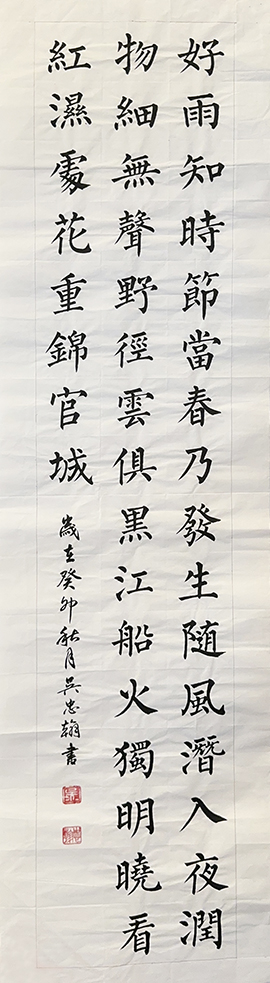 好雨知時節當春乃發生随風潛入夜潤
物細無聲野徑雲俱黒江船火獨明曉看
紅濕處花重錦官城
歲在癸卯秋月吳忠翰書